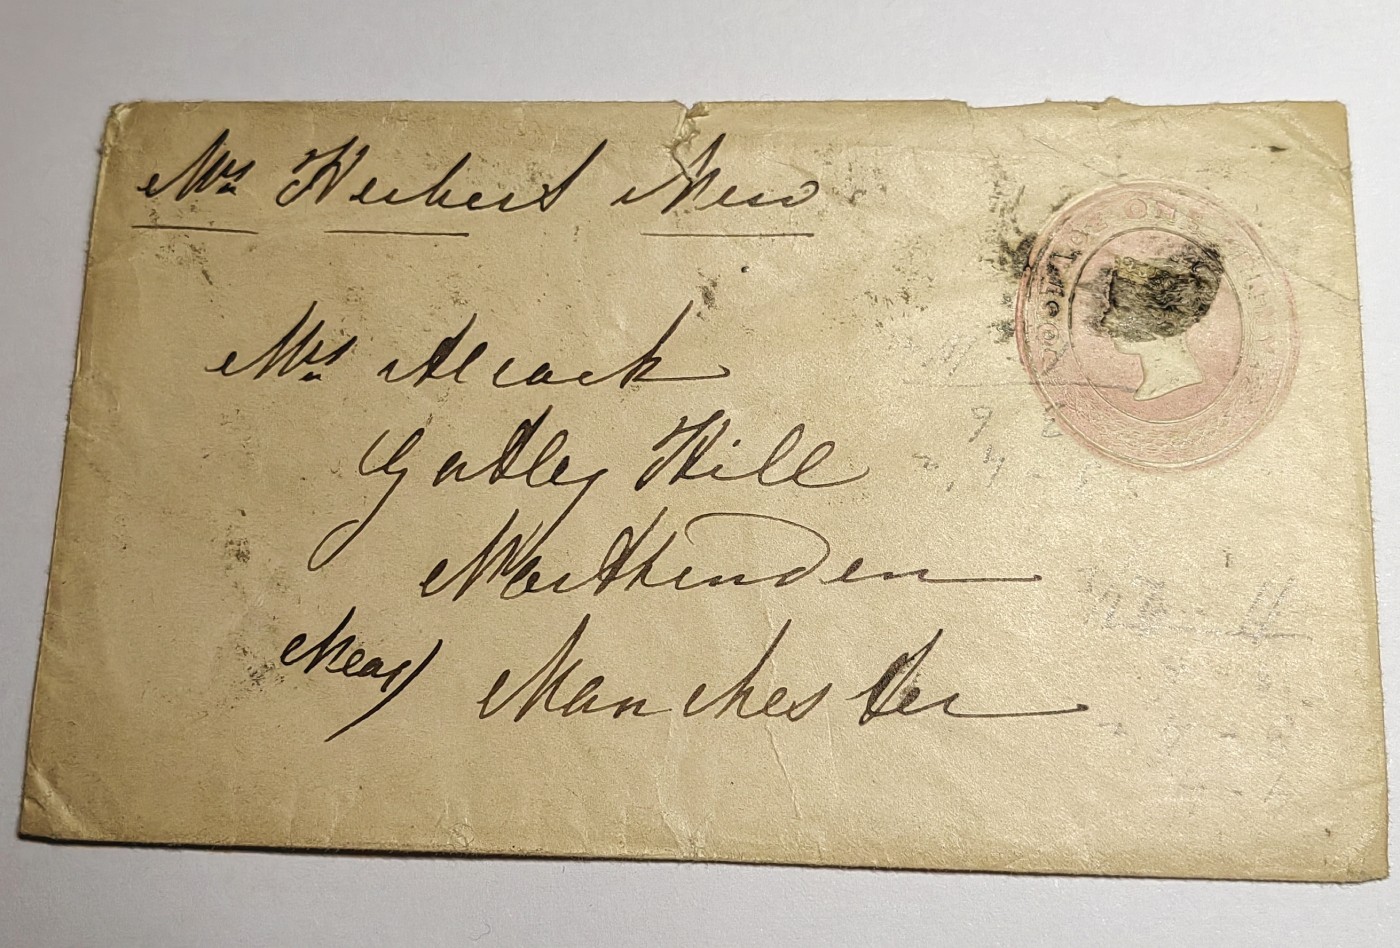 Mrs Herbert New
Mrs Alcock
Gatley Hill
Northenden
Near) Manchester
ONE PENNY